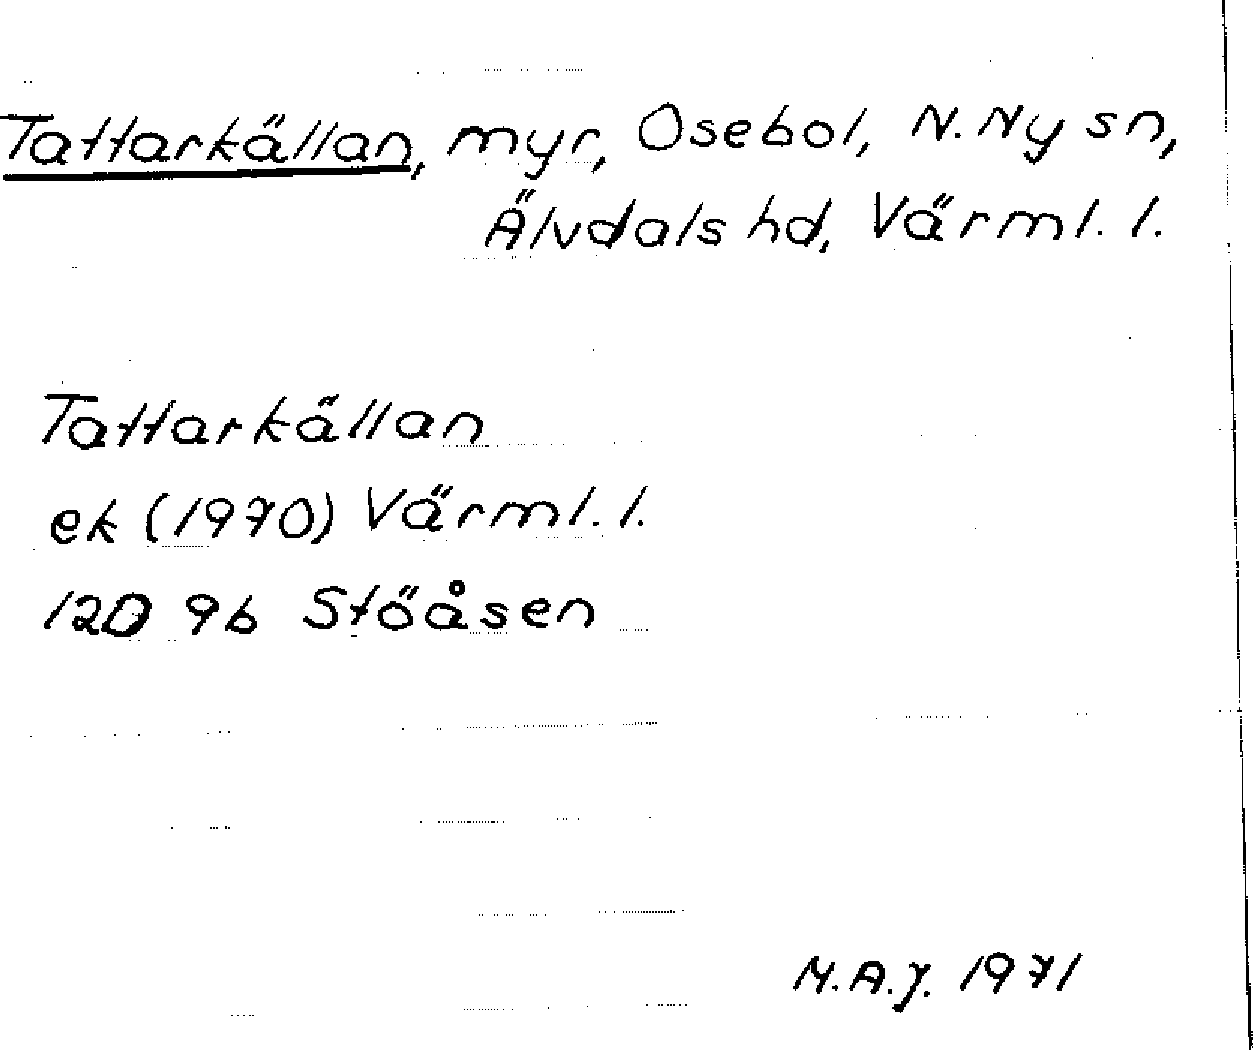 Tattarkällan, myr, Osebol, N. Ny sn,
Älvdals hd, Värml. l.
Tattarkällan
ek (1970) Värml. l.
12D 9b Stöåsen
M.A.J. 1971